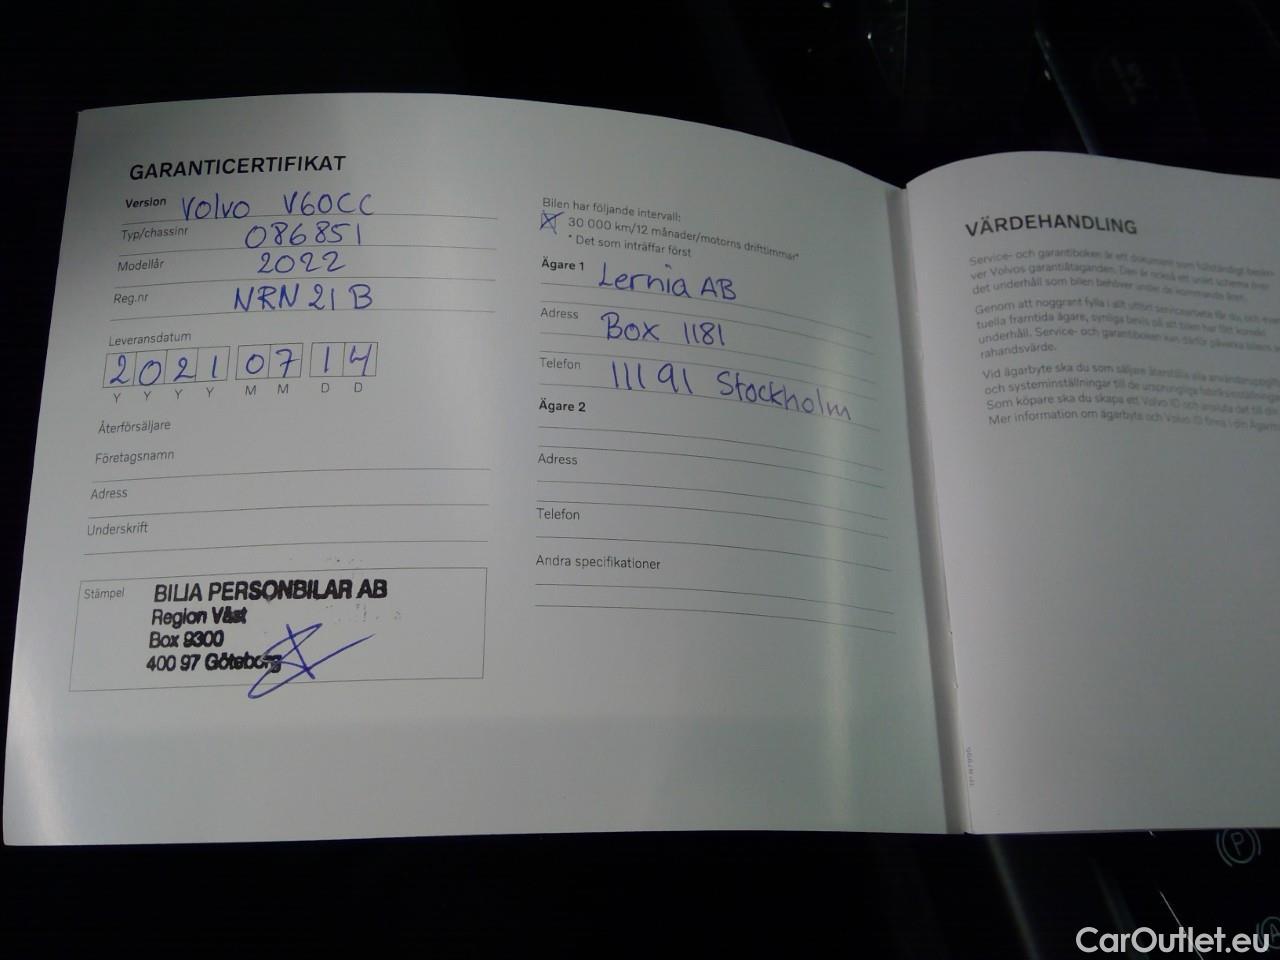 GARANTICERTIFIKAT
Version Volvo V60CC
Typ/chassinr 086851
Modellår 2022
Reg.nr NRN21B
Leveransdatum
2021 07 14
Y Y Y Y M M D D
Återförsäljare
Företagsnamn
Adress
Underskrift
Stämpel BILIA PERSONBILAR AB
Region Väst
Box 9300
400 97 Göteborg
Bilen har följande intervall:
30 000 km/12 månader/motorns drifttimmar*
* Det som inträffar först
Ägare 1 Lernia AB
Adress Box 1181
Telefon 111 91 Stockholm
Ägare 2
Adress
Telefon
Andra specifikationer
VÄRDEHANDLING
Service- och garantiboken är ett dokument som fullständigt beskri-
ver Volvos garantiåtaganden. Den är också ett unikt schema över
det underhåll som bilen behöver under de kommande åren.
Genom att noggrant fylla i allt utfört servicearbete får du, och even-
tuella framtida ägare, synliga bevis på att bilen har fått korrekt
underhåll. Service- och garantiboken kan därför påverka bilens
rahandsvärde.
Vid ägarbyte ska du som säljare återställa alla användaruppgifter
och systeminställningar till de ursprungliga fabriksinställningar
Som köpare ska du skapa ett Volvo ID och ansluta det till
Mer information om ägarbyte och Volvo ID finns i din
CarOutlet.eu